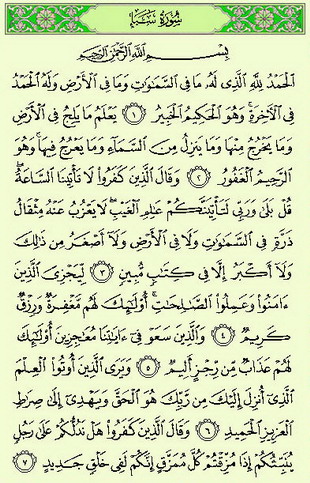 سُورَةُ سَبَإٍ
بِسْمِ اللَّهِ الرَّحْمَٰنِ الرَّحِيمِ
الْحَمْدُ لِلَّهِ الَّذِي لَهُ مَا فِي السَّمَاوَاتِ وَمَا فِي الْأَرْضِ وَلَهُ الْحَمْدُ
فِي الْآخِرَةِ وَهُوَ الْحَكِيمُ الْخَبِيرُ ١ يَعْلَمُ مَا يَلِجُ فِي الْأَرْضِ
وَمَا يَخْرُجُ مِنْهَا وَمَا يَنزِلُ مِنَ السَّمَاءِ وَمَا يَعْرُجُ فِيهَا وَهُوَ
الرَّحِيمُ الْغَفُورُ ٢ وَقَالَ الَّذِينَ كَفَرُوا لَا تَأْتِينَا السَّاعَةُ
قُلْ بَلَىٰ وَرَبِّي لَتَأْتِيَنَّكُمْ عَالِمِ الْغَيْبِ لَا يَعْزُبُ عَنْهُ مِثْقَالُ
ذَرَّةٍ فِي السَّمَاوَاتِ وَلَا فِي الْأَرْضِ وَلَا أَصْغَرُ مِن ذَٰلِكَ
وَلَا أَكْبَرُ إِلَّا فِي كِتَابٍ مُّبِينٍ ٣ لِّيَجْزِيَ الَّذِينَ
ءَامَنُوا وَعَمِلُوا الصَّالِحَاتِ أُولَٰئِكَ لَهُم مَّغْفِرَةٌ وَرِزْقٌ
كَرِيمٌ ٤ وَالَّذِينَ سَعَوْ فِي ءَايَاتِنَا مُعَاجِزِينَ أُولَٰئِكَ
لَهُمْ عَذَابٌ مِّن رِّجْزٍ أَلِيمٌ ٥ وَيَرَى الَّذِينَ أُوتُوا الْعِلْمَ
الَّذِي أُنزِلَ إِلَيْكَ مِن رَّبِّكَ هُوَ الْحَقَّ وَيَهْدِي إِلَىٰ صِرَاطِ
الْعَزِيزِ الْحَمِيدِ ٦ وَقَالَ الَّذِينَ كَفَرُوا هَلْ نَدُلُّكُمْ عَلَىٰ رَجُلٍ
يُنَبِّئُكُمْ إِذَا مُزِّقْتُمْ كُلَّ مُمَزَّقٍ إِنَّكُمْ لَفِي خَلْقٍ جَدِيدٍ ٧